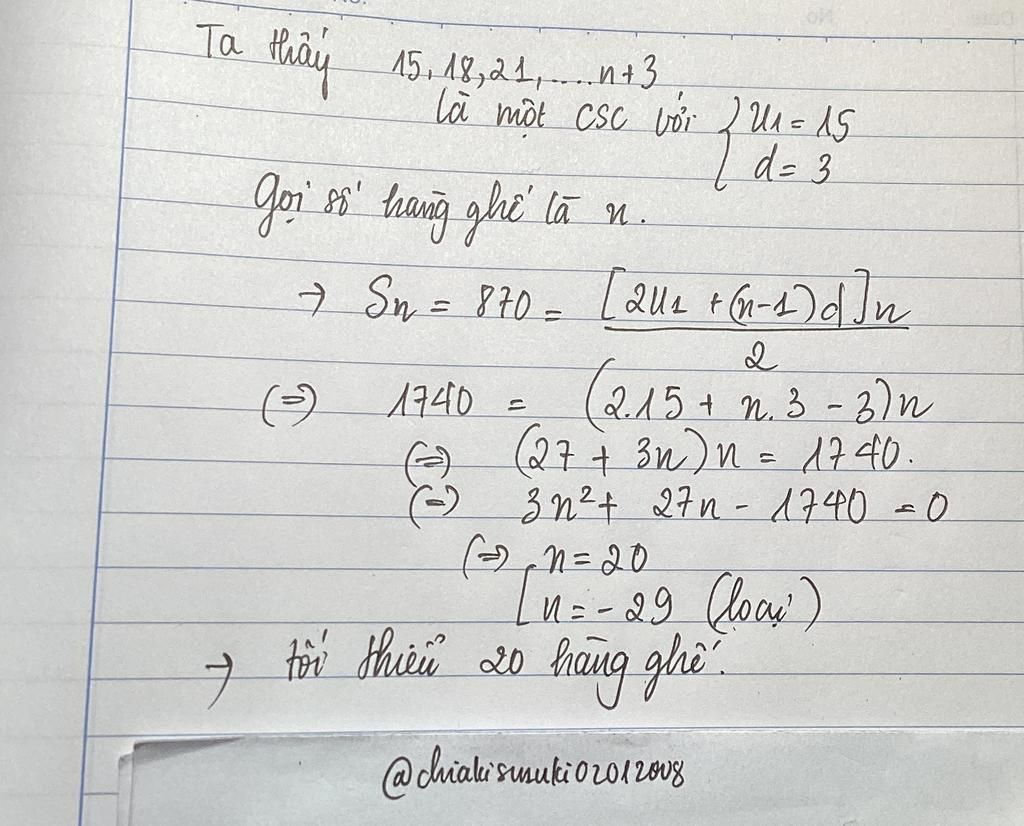 Ta thấy 15, 18, 21, .... n+3
là một CSC với { U1 = 15
d = 3
Gọi số hàng ghế là n.
→ Sn = 870 = [2U1 + (n-1)d]n
2
(=) 1740 = (2.15 + n.3 - 3)n
(=) (27 + 3n)n = 1740.
(=) 3n² + 27n - 1740 = 0
(=) [ n = 20
n = -29 (loại)
→ tối thiểu 20 hàng ghế.
@chiakisusuki02012008